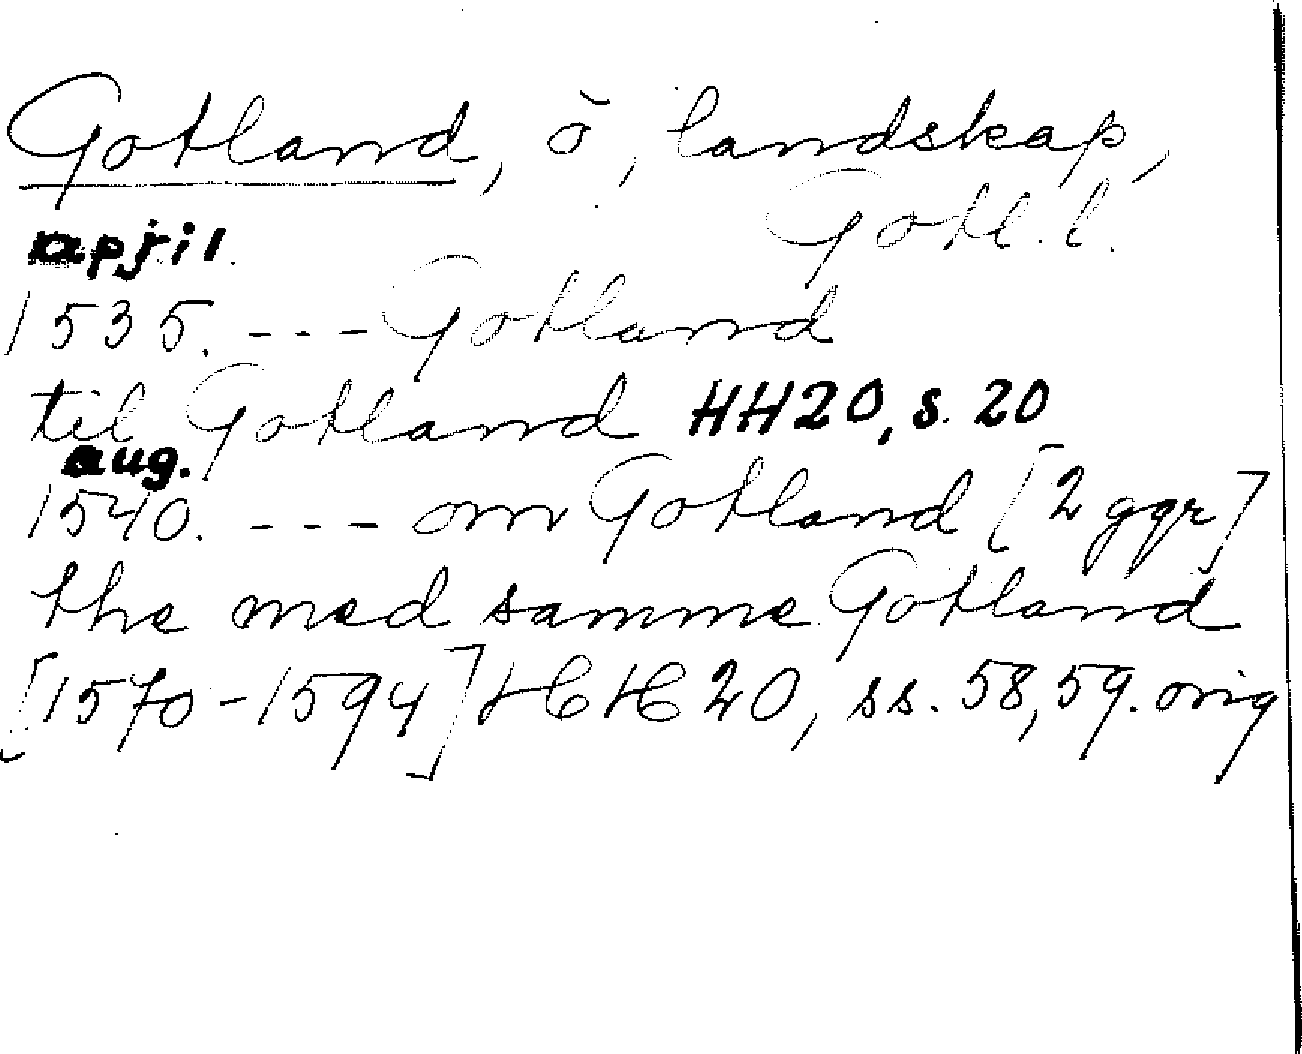 Gotland, ö, landskap,
Gotl. l.
april
1535. --- Gotland
til Gotland HH20, s. 20
aug.
1540. --- om Gotland [2 ggr]
the med samme Gotland
[1570-1594] HH 20, ss. 58, 59. orig